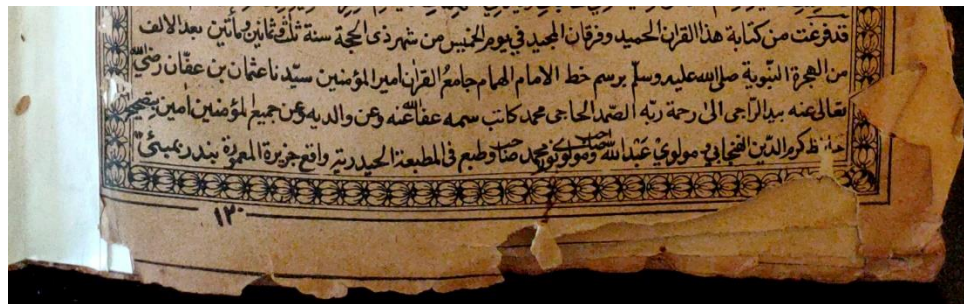 قد فرغت من كتابة هذا القرآن الحميد وفرقان المجيد في يوم الخميس من شهر ذي الحجة سنة ثلث وثمانين ومأتين بعد الالف
من الهجرة النبوية صلى الله عليه وسلم برسم خط الامام الهمام جامع القرآن امير المؤمنين سيدنا عثمان بن عفان رضي الله
تعالى عنه بيد الراجي الى رحمة ربه الصمد الحاجى محمد كاتب سمه عفا الله عنه وعن والديه وعن جميع المؤمنين امين بتصحيح
حافظ كرم الدين الفنجابي ومولوي عبد الله صاحب ومولوي نور محمد صاحب وطبع في المطبعة الحيدرية واقع جزيرة المعمورة بندر بمبئ
١٢٠